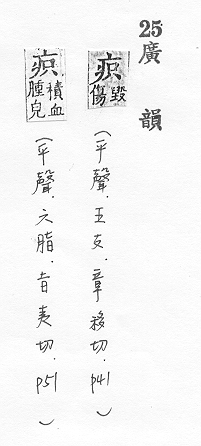 25 廣韻
疻 毀傷
(平聲.五支.章移切.p41)
疻 積血腫皃
(平聲.六脂.旨夷切.p51)